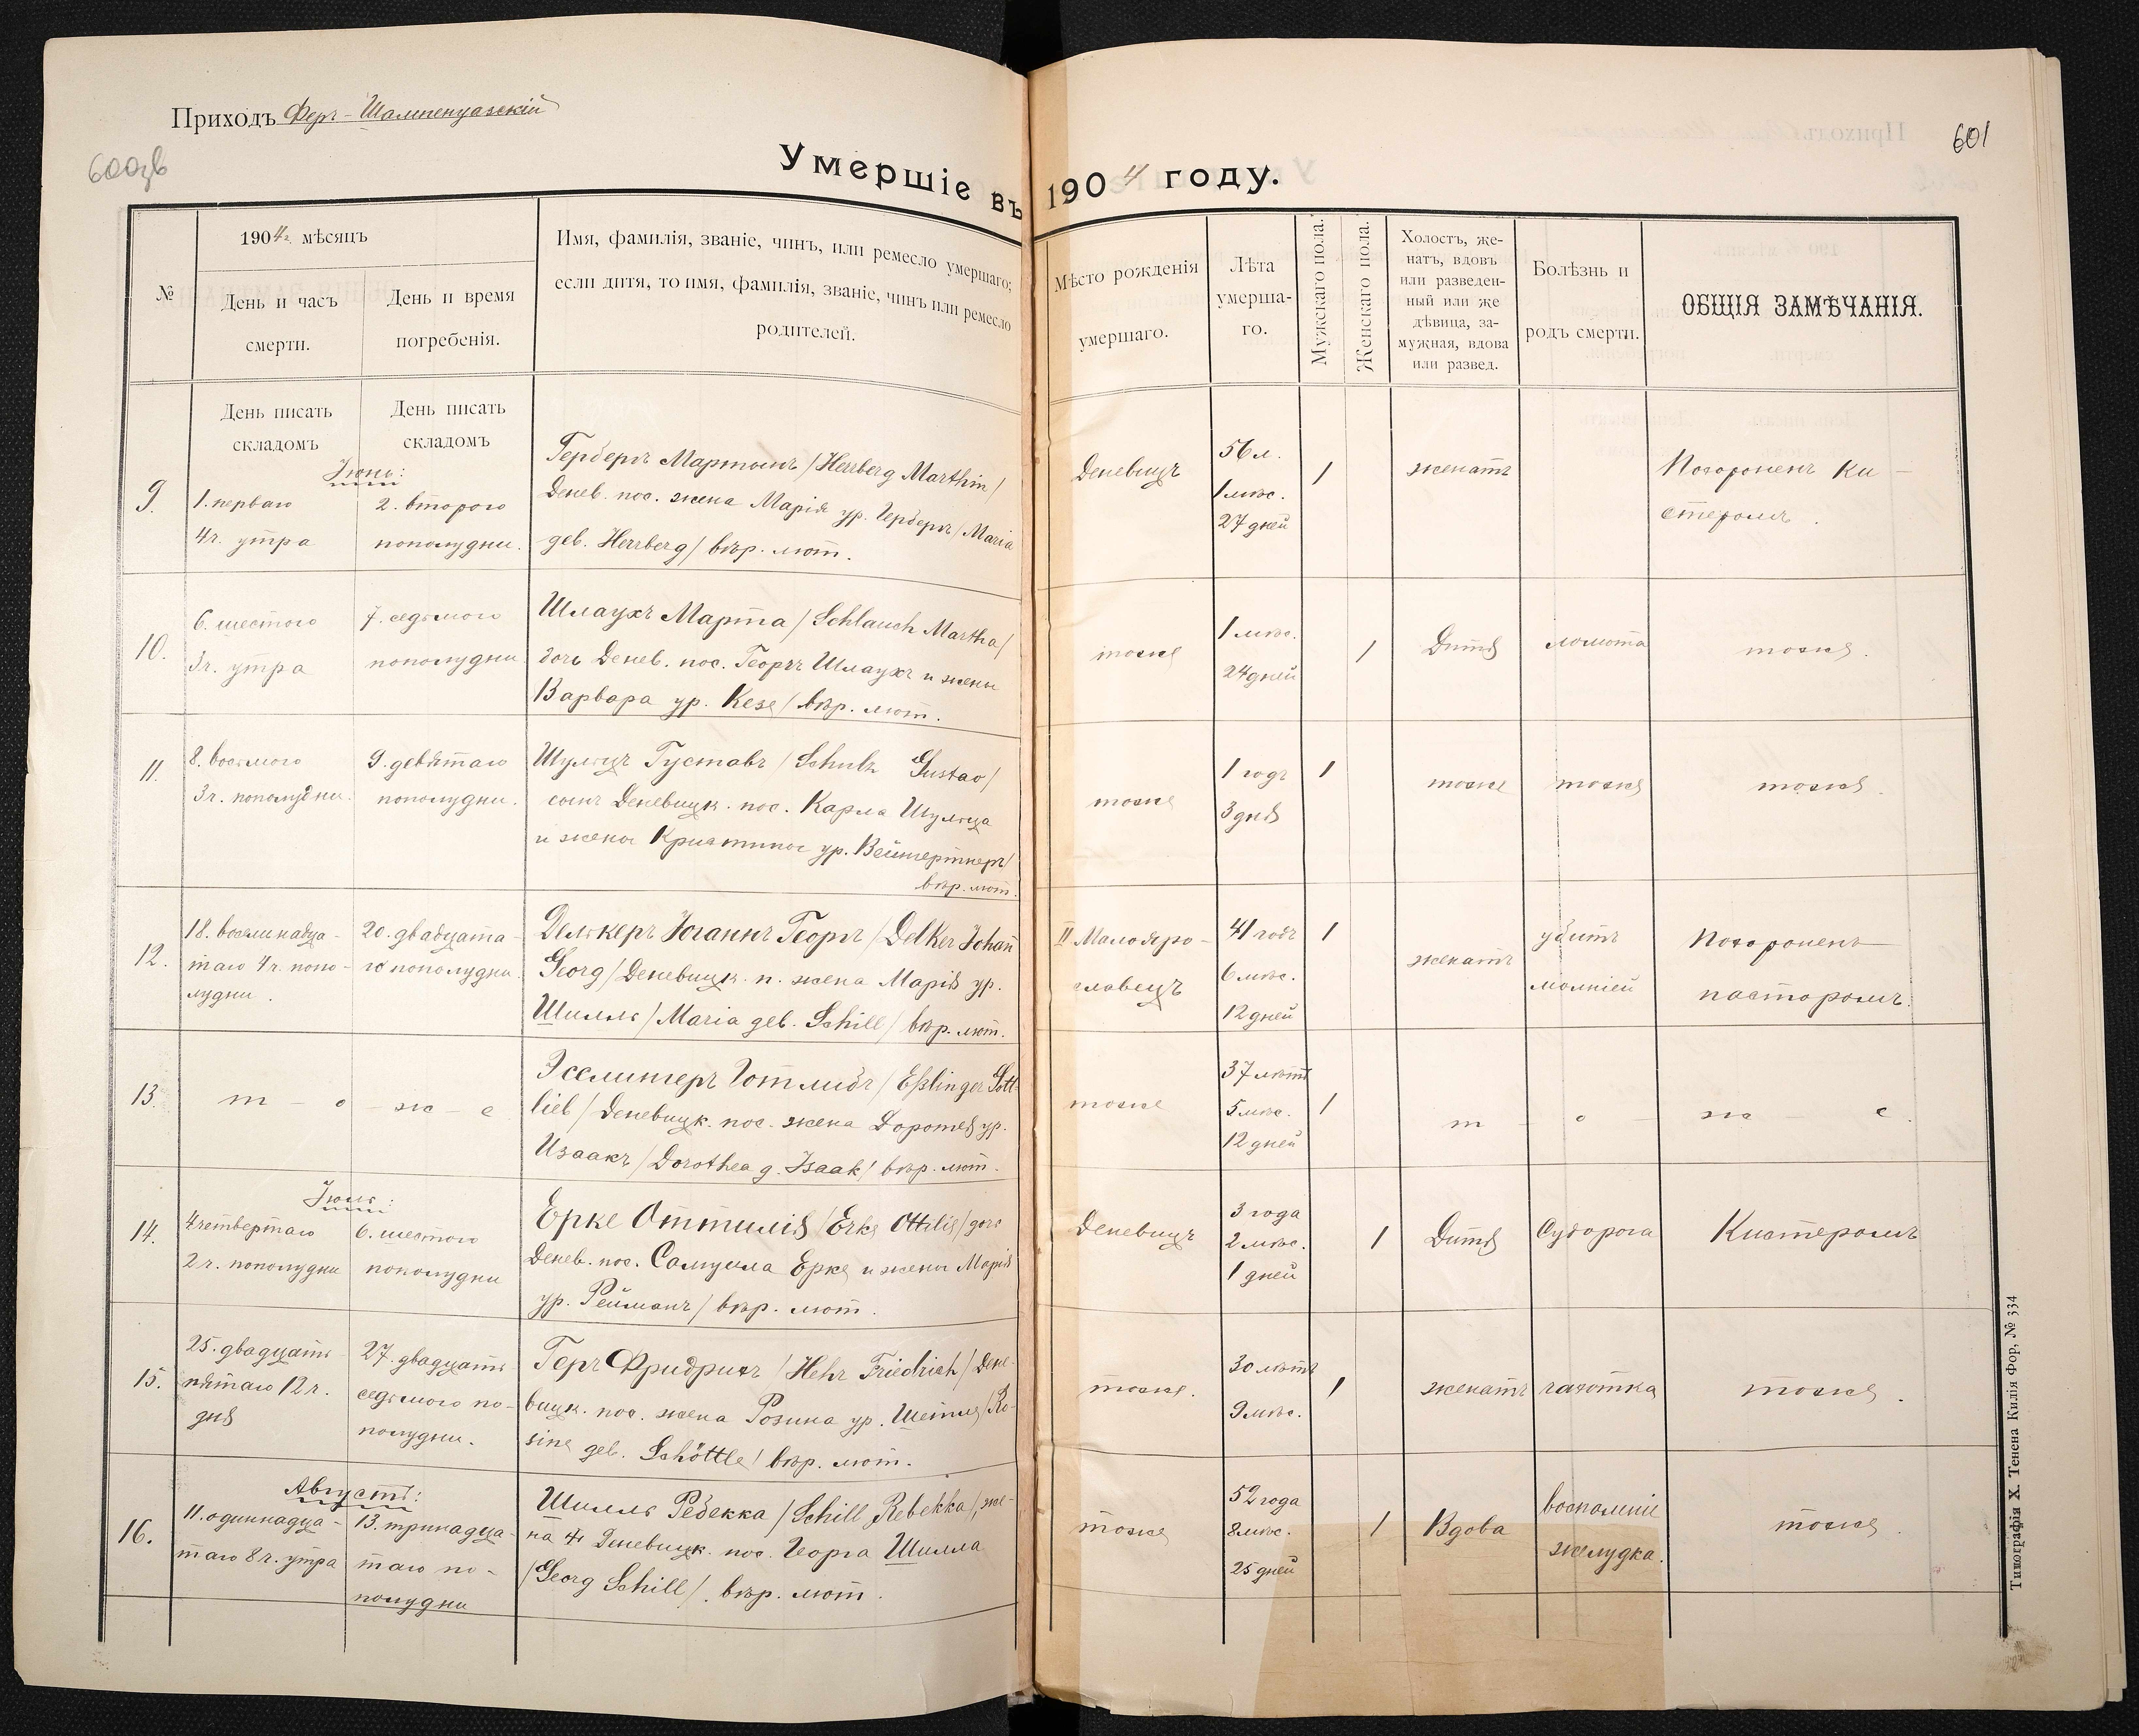 Приходъ Феръ-Шампенуазскій
600об
601
Умершіе въ 1904 году.
№
1904г. мѣсяцъ
День и часъ
смерти.
День и время
погребенія.
Имя, фамилія, званіе, чинъ, или ремесло умершаго;
если дитя, то имя, фамилія, званіе, чинъ или ремесло
родителей.
Мѣсто рожденія
умершаго.
Лѣта
умерша-
го.
Мужскаго пола.
Женскаго пола.
Холостъ, же-
натъ, вдовъ
или разведен-
ный или же
дѣвица, за-
мужная, вдова
или развед.
Болѣзнь и
родъ смерти.
ОБЩІЯ ЗАМѢЧАНІЯ.
День писать
складомъ
День писать
складомъ
Іюнь:
9.
1. перваго
4 ч. утра
2. второго
пополудни.
Герберъ Мартынъ /Herrberg Marthin/
Денев. пос. жена Марія ур. Герберъ /Maria
geb. Herrberg/ вѣр. лют.
Деневицъ
56 л.
1 мѣс.
27 дней
1
женатъ
Похороненъ ки-
стеромъ.
10.
6. шестого
3 ч. утра
7. седьмого
пополудни
Шлаухъ Марта /Schlauch Martha/
дочь Денев. пос. Георгъ Шлаухъ и жены
Варвара ур. Кезе/ вѣр. лют.
тоже
1 мѣс.
24 дней
1
Дитя
ломота
тоже.
11.
8. восьмого
3 ч. пополудни.
9. девятаго
пополудни.
Шульцъ Густавъ /Schulz Gustav/
сынъ Деневицк. пос. Карла Шульца
и жены Кристины ур.
вѣр. лют.
тоже
1 годъ
3 дня
1
тоже
тоже
тоже.
12.
18. восемнадца-
таго 4 ч. попо-
лудни.
20. двадцата-
го пополудни.
Делькеръ Іоганнъ Георгъ /Delker Johan̄
Georg/ Деневицк. п. жена Марія ур.
Шилль /Maria geb. Schill/ вѣр. лют.
II Малояро-
славецъ
41 годъ
6 мѣс.
12 дней
1
женатъ
убитъ
молніей
Похороненъ
пасторомъ.
13.
т - о - ж - е
Эсслингеръ Готлибъ /Eßlinger Gott-
lieb/ Деневицк. пос. жена Доротея ур.
Изаакъ /Dorothea g. Isaak/ вѣр. лют.
тоже
37 лѣтъ
5 мѣс.
12 дней
1
т - о - ж - е.
Іюль:
14.
4 четвертаго
2 ч. пополудни
6. шестого
пополудни
Ерке Оттилія /Erke Ottilie/ дочь
Денев. пос. Самуила Ерке и жены Марія
ур. Рейманъ/ вѣр. лют.
Деневицъ
3 года
2 мѣс.
1 дней
1
Дитя
Судорога
Кистеромъ
15.
25. двадцать
пятаго 12 ч.
дня
27. двадцать
седьмого по-
полудни.
Геръ Фридрихъ /Hehr Friedrich/ Дене-
вицк. пос. жена Розина ур. Шетле /Ro-
sine geb. Schöttle/ вѣр. лют.
тоже.
30 лѣтъ
9 мѣс.
1
женатъ
чахотка
тоже.
Августъ:
16.
11. одиннадца-
таго 8 ч. утра
13. тринадца-
таго по-
полудни
Шилль Ребекка /Schill Rebekka/, же-
на Деневицк. пос. Георга Шилля
/Georg Schill/. вѣр. лют.
тоже
52 года
8 мѣс.
25 дней
1
Вдова
воспаленіе
желудка.
тоже.
Типографія Х. Тенена Килія Фор, № 334